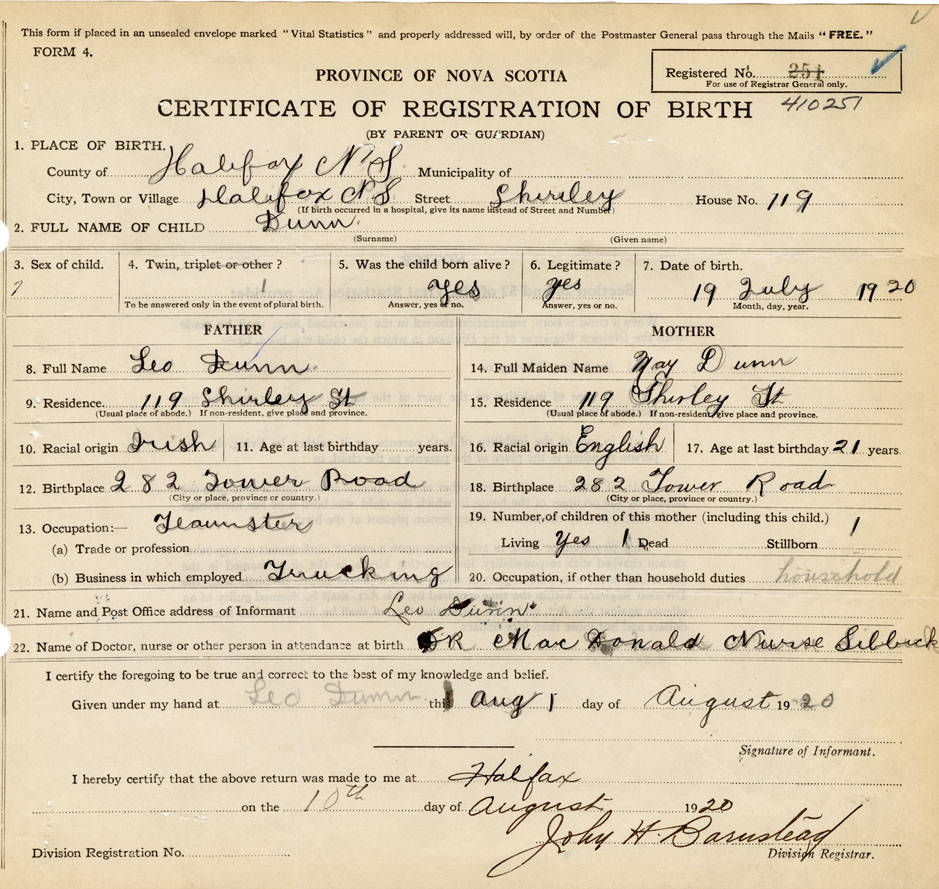 This form if placed in an unsealed envelope marked "Vital Statistics" and properly addressed will, by order of the Postmaster General pass through the Mails "FREE."
FORM 4.
PROVINCE OF NOVA SCOTIA
Registered No. 251
For use of Registrar General only.
CERTIFICATE OF REGISTRATION OF BIRTH 410251
(BY PARENT OR GUARDIAN)
1. PLACE OF BIRTH.
County of Halifax N S Municipality of
City, Town or Village Halifax N S Street Shirley House No. 119
(If birth occurred in a hospital, give its name instead of Street and Number)
2. FULL NAME OF CHILD Dunn
(Surname) (Given name)
3. Sex of child. 4. Twin, triplet or other? 5. Was the child born alive? 6. Legitimate? 7. Date of birth.
1 yes yes 19 July 1920
To be answered only in the event of plural birth. Answer, yes or no. Answer, yes or no. Month, day, year.
FATHER MOTHER
8. Full Name Leo Dunn 14. Full Maiden Name May Dunn
9. Residence. 119 Shirley St 15. Residence 119 Shirley St
(Usual place of abode.) If non-resident, give place and province. (Usual place of abode.) If non-resident, give place and province.
10. Racial origin Irish 11. Age at last birthday years. 16. Racial origin English 17. Age at last birthday 21 years.
12. Birthplace 282 Tower Road 18. Birthplace 282 Tower Road
(City or place, province or country.) (City or place, province or country.)
13. Occupation:— Teamster 19. Number, of children of this mother (including this child.) 1
(a) Trade or profession Living Yes 1 Dead Stillborn
(b) Business in which employed Trucking 20. Occupation, if other than household duties household
21. Name and Post Office address of Informant Leo Dunn
22. Name of Doctor, nurse or other person in attendance at birth DR Mac Donald Nurse Sibbick
I certify the foregoing to be true and correct to the best of my knowledge and belief.
Given under my hand at Leo Dunn this 1 Aug 1 day of August 1920
Signature of Informant.
I hereby certify that the above return was made to me at Halfax
on the 10th day of August 1920
John H. Barnstead
Division Registration No. Division Registrar.